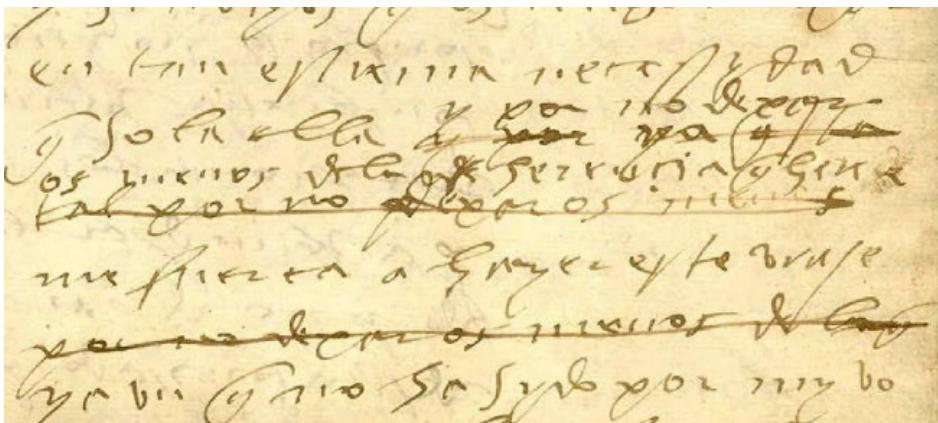 en tan estrema necessydad
y por no dexar
q̃ sola ella y por
os menos dela de herencia q̃ here
tal por no dexaros menos
me fuerca a hazer este viaje
por no dexar os menos de lo q̃
ya un q̃ no ha sydo por my vo